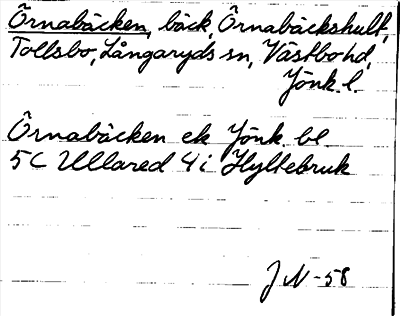 Örnabäcken, bäck, Örnabäckshult,
Tollsbo, Långaryds sn, Västbo hd,
Jönk. l.
Örnabäcken ek Jönk. bl.
5C Ullared 4i Hyltebruk
J N -58